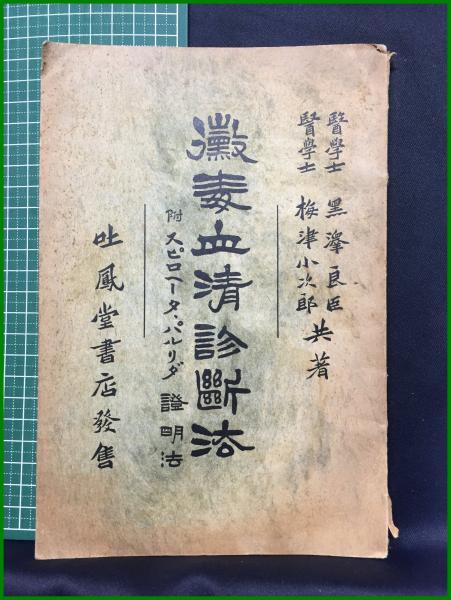 醫學士 黑澤良臣
醫學士 梅津小次郎 共著
黴毒血清診斷法
附 スピロヘータ、パルリダ 證明法
吐鳳堂書店發售